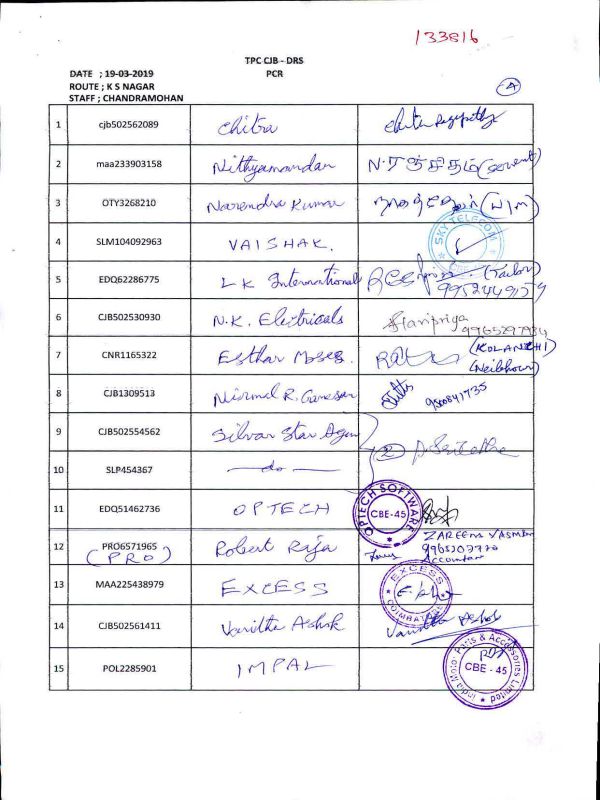 133816
TPC CJB - DRS
DATE ; 19-03-2019 PCR
ROUTE ; K S NAGAR
STAFF ; CHANDRAMOHAN
4
1 cjb502562089 Chitra
2 maa233903158 Nithyanandan N. ரஞ்சிதம் (Servent)
3 OTY3268210 Narendra Kumar
4 SLM104092963 VAISHAK. SKY TELECOM
5 EDQ62286775 LK International (Tailor)
6 CJB502530930 N.K. Electricals Haripriya
9965297934
7 CNR1165322 Esthar Moses. (KOLANCHI)
(Neibhour)
8 CJB1309513 Nirmal R. Ganesan 9500841735
9 CJB502554562 Silvar Star Agen
2
10 SLP454367 — do —
11 EDQ51462736 OPTECH OPTECH SOFTWARE CBE-45
12 PRO6571965 Robert Raja ZAREENA YASMIN
(PRO) Accountan
13 MAA225438979 EXCESS EXCESS COIMBATORE
14 CJB502561411 Vanitha Ashok Vanitha Ashok
15 POL2285901 IMPAL India Motor Parts & Accessories Limited CBE - 45